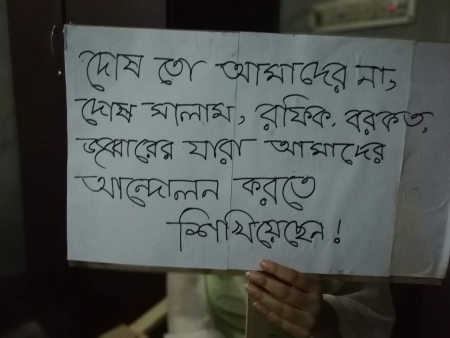 দোষ তো আমাদের না,
দোষ সালাম, রফিক, বরকত,
জব্বারের যারা আমাদের
আন্দোলন করতে
শিখিয়েছেন!